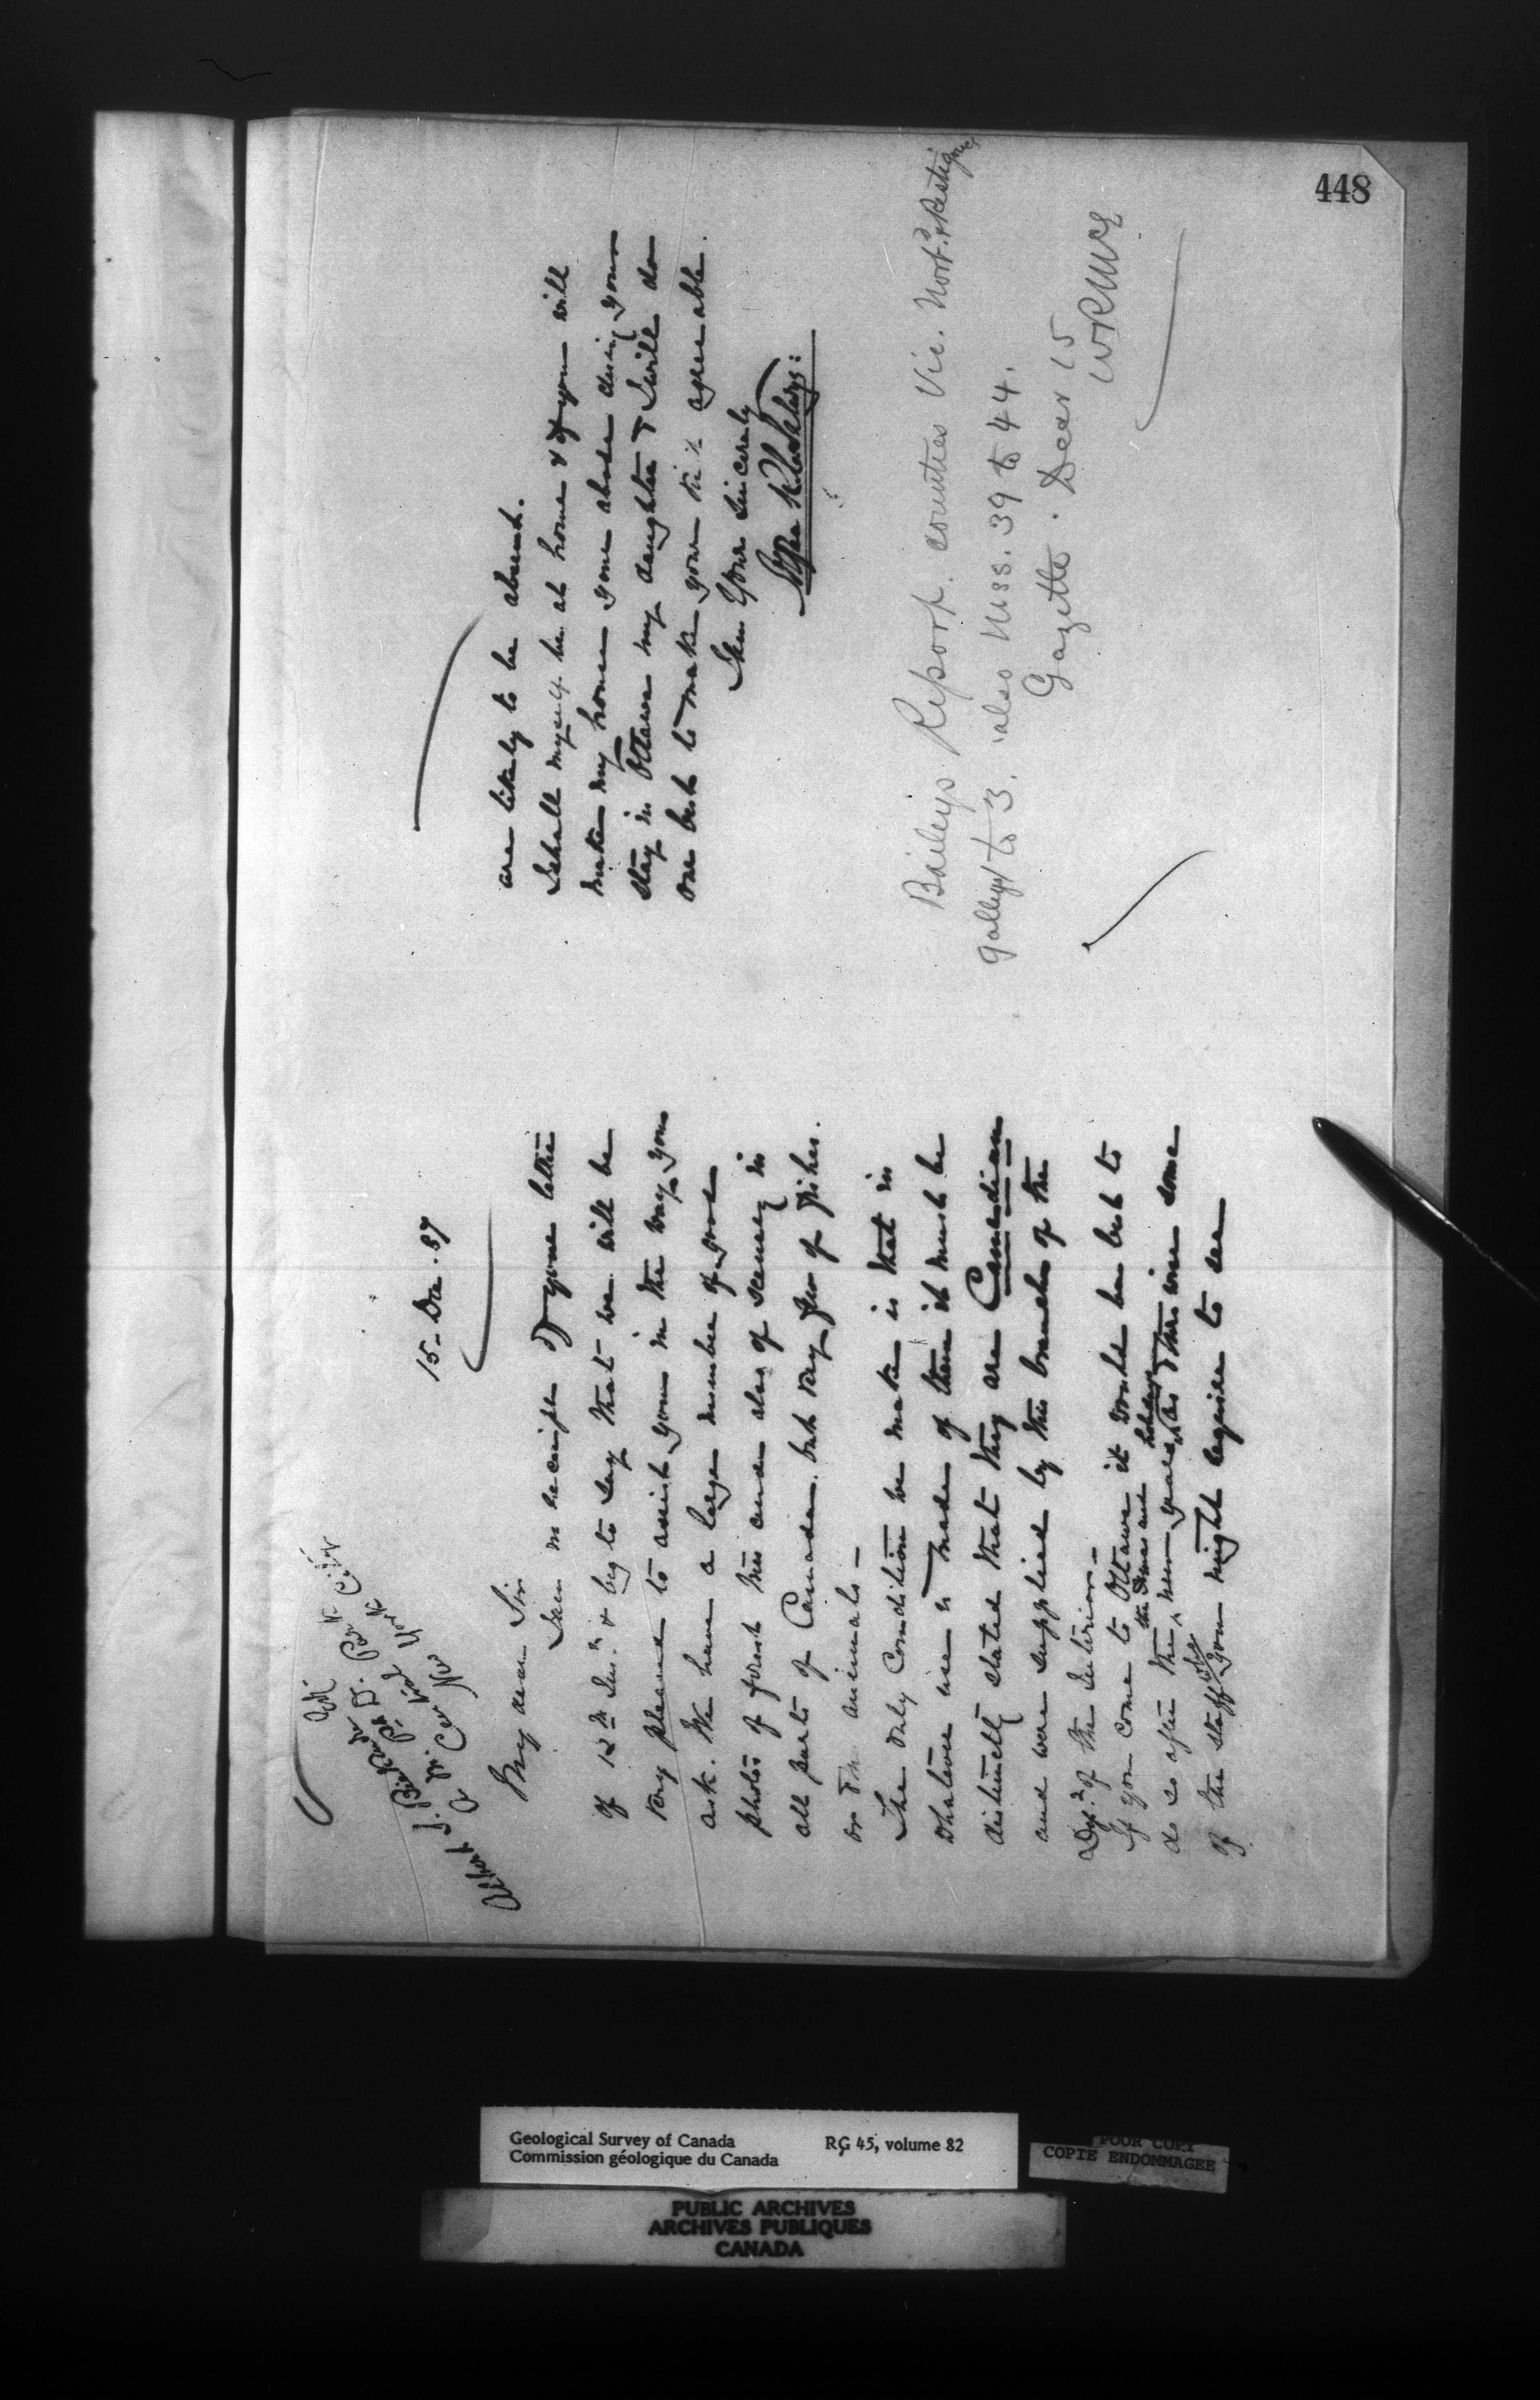 448
15 Dec. 87
My dear Sir
I am in receipt of your letter
of 12th Inst. & beg to say that we will be
very pleased to assist you in the way you
ask. We have a large number of good
photos of forest trees and also of scenery in
all parts of Canada but very few of fishes
or animals —
The only condition we make is that in
whatever use is made of them it must be
distinctly stated that they are Canadian
and were supplied by this branch of the
Dept. of the Interior —
If you come to Ottawa it would be best to
do so after the Xmas and new years holidays as otherwise some
of the staff who you might require to see
are likely to be absent.
I shall myself be at home & if you will
make my house your abode during your
stay in Ottawa my daughter & I will do
our best to make your visit agreeable.
I am Yours Sincerely
Baileys Report. counties Vic. North. & Restigouche
galleys 1 to 3. also Mss. 39 to 44.
Gazette. Decr 15
Geological Survey of Canada
Commission géologique du Canada
RG 45, volume 82
POOR COPY
COPIE ENDOMMAGEE
PUBLIC ARCHIVES
ARCHIVES PUBLIQUES
CANADA